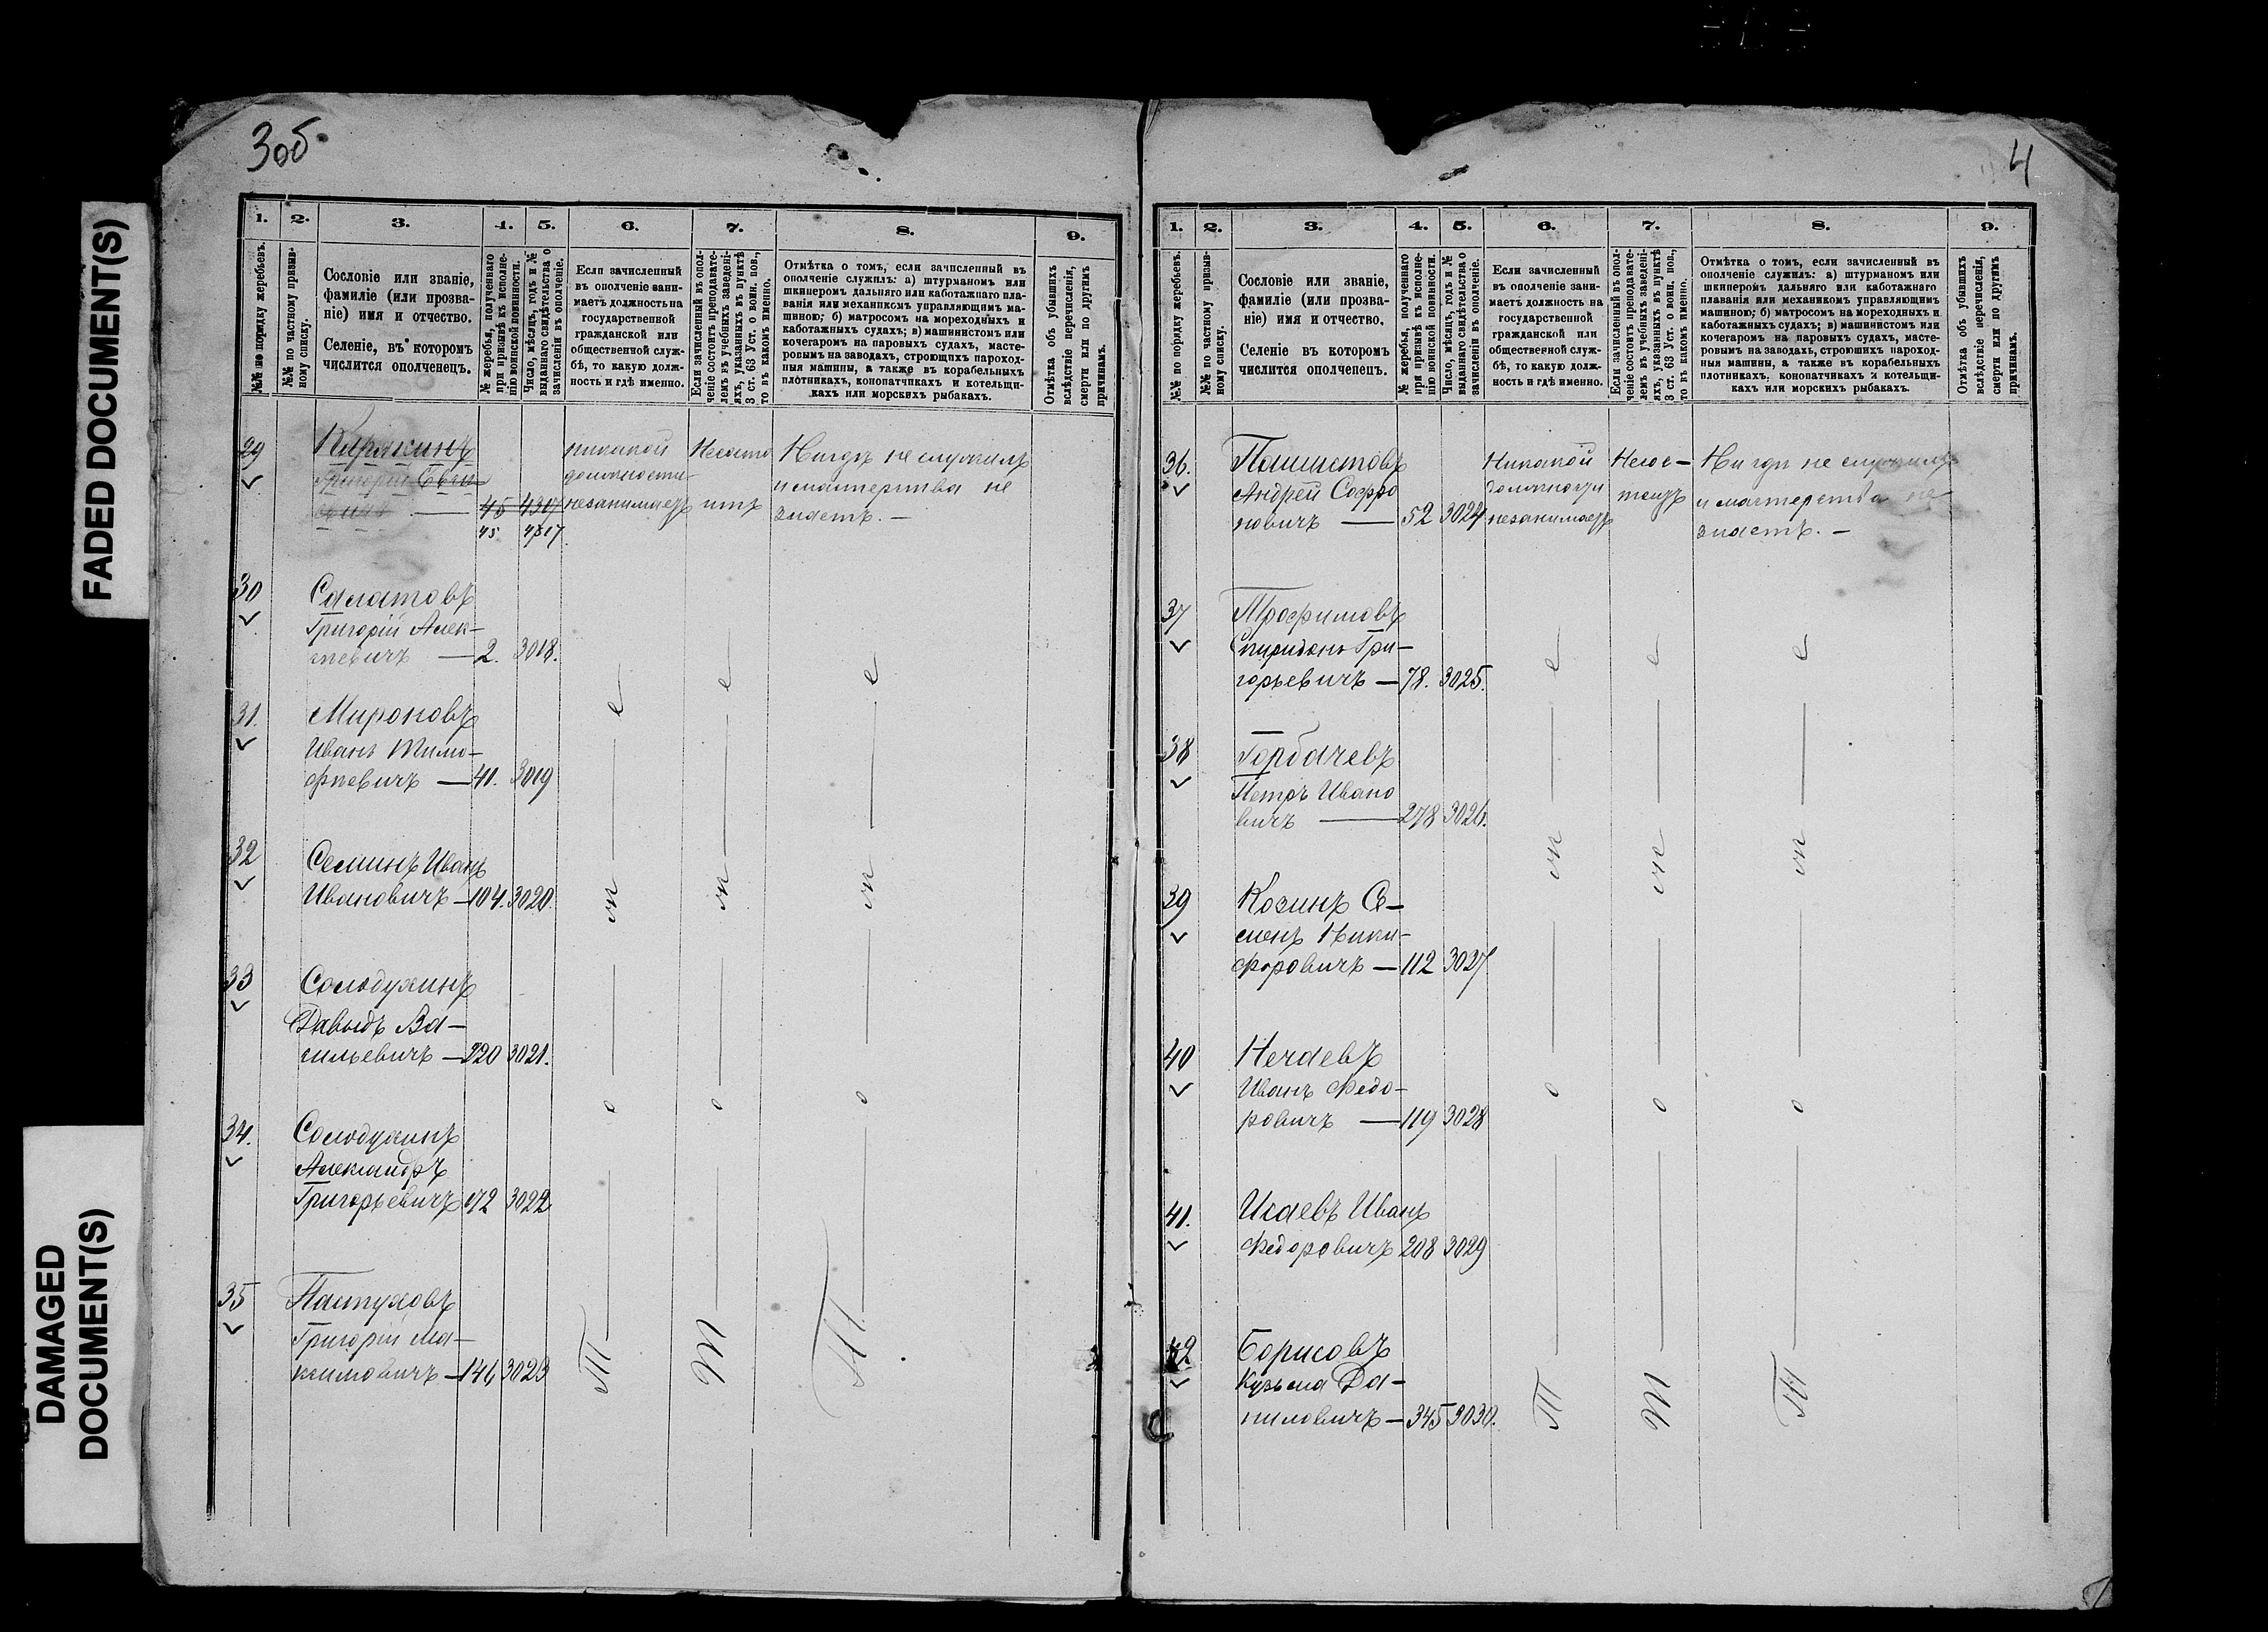 FADED DOCUMENT(S)
DAMAGED
DOCUMENT(S)
3об
1. 2. 3. 4. 5. 6. 7. 8. 9.
№№ по порядку жеребьевъ.
№№ по частному призыв-
ному списку.
Сословіе или званіе,
фамиліе (или прозва-
ніе) имя и отчество.
Селеніе, въ которомъ
числится ополченецъ.
№ жеребья, полученнаго
при призывѣ къ исполне-
нію воинской повинности.
Число, мѣсяцъ, годъ и №
выданнаго свидѣтельства о
зачисленіи въ ополченіе.
Если зачисленный
въ ополченіе зани-
маетъ должность на
государственной
гражданской или
общественной служ-
бѣ, то какую долж-
ность и гдѣ именно.
Если зачисленный въ опол-
ченіе состоитъ преподавате-
лемъ въ учебныхъ заведені-
яхъ, указанныхъ въ пунктѣ
3 ст. 63 Уст. о воин. пов.,
то въ какомъ именно.
Отмѣтка о томъ, если зачисленный въ
ополченіе служилъ: а) штурманомъ или
шкиперомъ дальняго или каботажнаго пла-
ванія или механикомъ управляющимъ ма-
шиною; б) матросомъ на мореходныхъ и
каботажныхъ судахъ; в) машинистомъ или
кочегаромъ на паровыхъ судахъ, масте-
ровымъ на заводахъ, строющихъ пароход-
ныя машины, а также въ корабельныхъ
плотникахъ, конопатчикахъ и котельщи-
кахъ или морскихъ рыбакахъ.
Отмѣтка объ убывшихъ
вслѣдствіе перечисленія,
смерти или по другимъ
причинамъ.
29 Никакой Несосто Нигдѣ не служилъ
Григорій должности и мастерства не
45 незанимаетъ итъ знаетъ. —
45
30 Салатовъ
Григорій Алек-
ѣевичъ — 2. 3018.
31. Мироновъ
Иванъ Тимо-
фѣевичъ — 41. 3019
32 Семинъ Иванъ
Ивановичъ — 104. 3020.
33 Солодухинъ
Давыдъ Ва-
сильевичъ — 220 3021.
34. Солодухинъ
Александръ
Григорьевичъ 172 3022
35 Пастуховъ
Григорій Ма-
ксимовичъ — 146 3023
Т — о — ж — е
Т — о — ж — е
Т — о — ж — е
4
1. 2. 3. 4. 5. 6. 7. 8. 9.
№№ по порядку жеребьевъ.
№№ по частному призыв-
ному списку.
Сословіе или званіе,
фамиліе (или прозва-
ніе) имя и отчество.
Селеніе въ которомъ
числится ополченецъ.
№ жеребья, полученнаго
при призывѣ къ исполне-
нію воинской повинности.
Число, мѣсяцъ, годъ и №
выданнаго свидѣтельства о
зачисленіи въ ополченіе.
Если зачисленный
въ ополченіе зани-
маетъ должность на
государственной
гражданской или
общественной служ-
бѣ, то какую долж-
ность и гдѣ именно.
Если зачисленный въ опол-
ченіе состоитъ преподавате-
лемъ въ учебныхъ заведені-
яхъ, указанныхъ въ пунктѣ
3 ст. 63 Уст. о воин. пов.,
то въ какомъ именно.
Отмѣтка о томъ, если зачисленный въ
ополченіе служилъ: а) штурманомъ или
шкиперомъ дальняго или каботажнаго
плаванія или механикомъ управляющимъ
машиною; б) матросомъ на мореходныхъ и
каботажныхъ судахъ; в) машинистомъ или
кочегаромъ на паровыхъ судахъ, масте-
ровымъ на заводахъ, строющихъ пароход-
ныя машины, а также въ корабельныхъ
плотникахъ, конопатчикахъ и котельщи-
кахъ или морскихъ рыбакахъ.
Отмѣтка объ убывшихъ
вслѣдствіе перечисленія,
смерти или по другимъ
причинамъ.
36. Никакой Несос- Нигдѣ не служилъ
Андрей Софро должности тоитъ и мастерства не
новичъ — 52 3024 незанимаетъ знаетъ. —
37 Трофимовъ
Спиридонъ Гри-
горьевичъ — 78. 3025.
38 Горбачевъ
Петръ Ивано
вичъ — 278 3026.
39 Козинъ Се-
менъ Ники-
форовичъ — 112 3027
40 Нечаевъ
Иванъ Федо-
ровичъ — 119 3028
41. Исаевъ Иванъ
Федоровичъ 208 3029
42 Борисовъ
Кузьма Да-
ниловичъ — 345 3030.
Т — о — ж — е
Т — о — ж — е
Т — о — ж — е